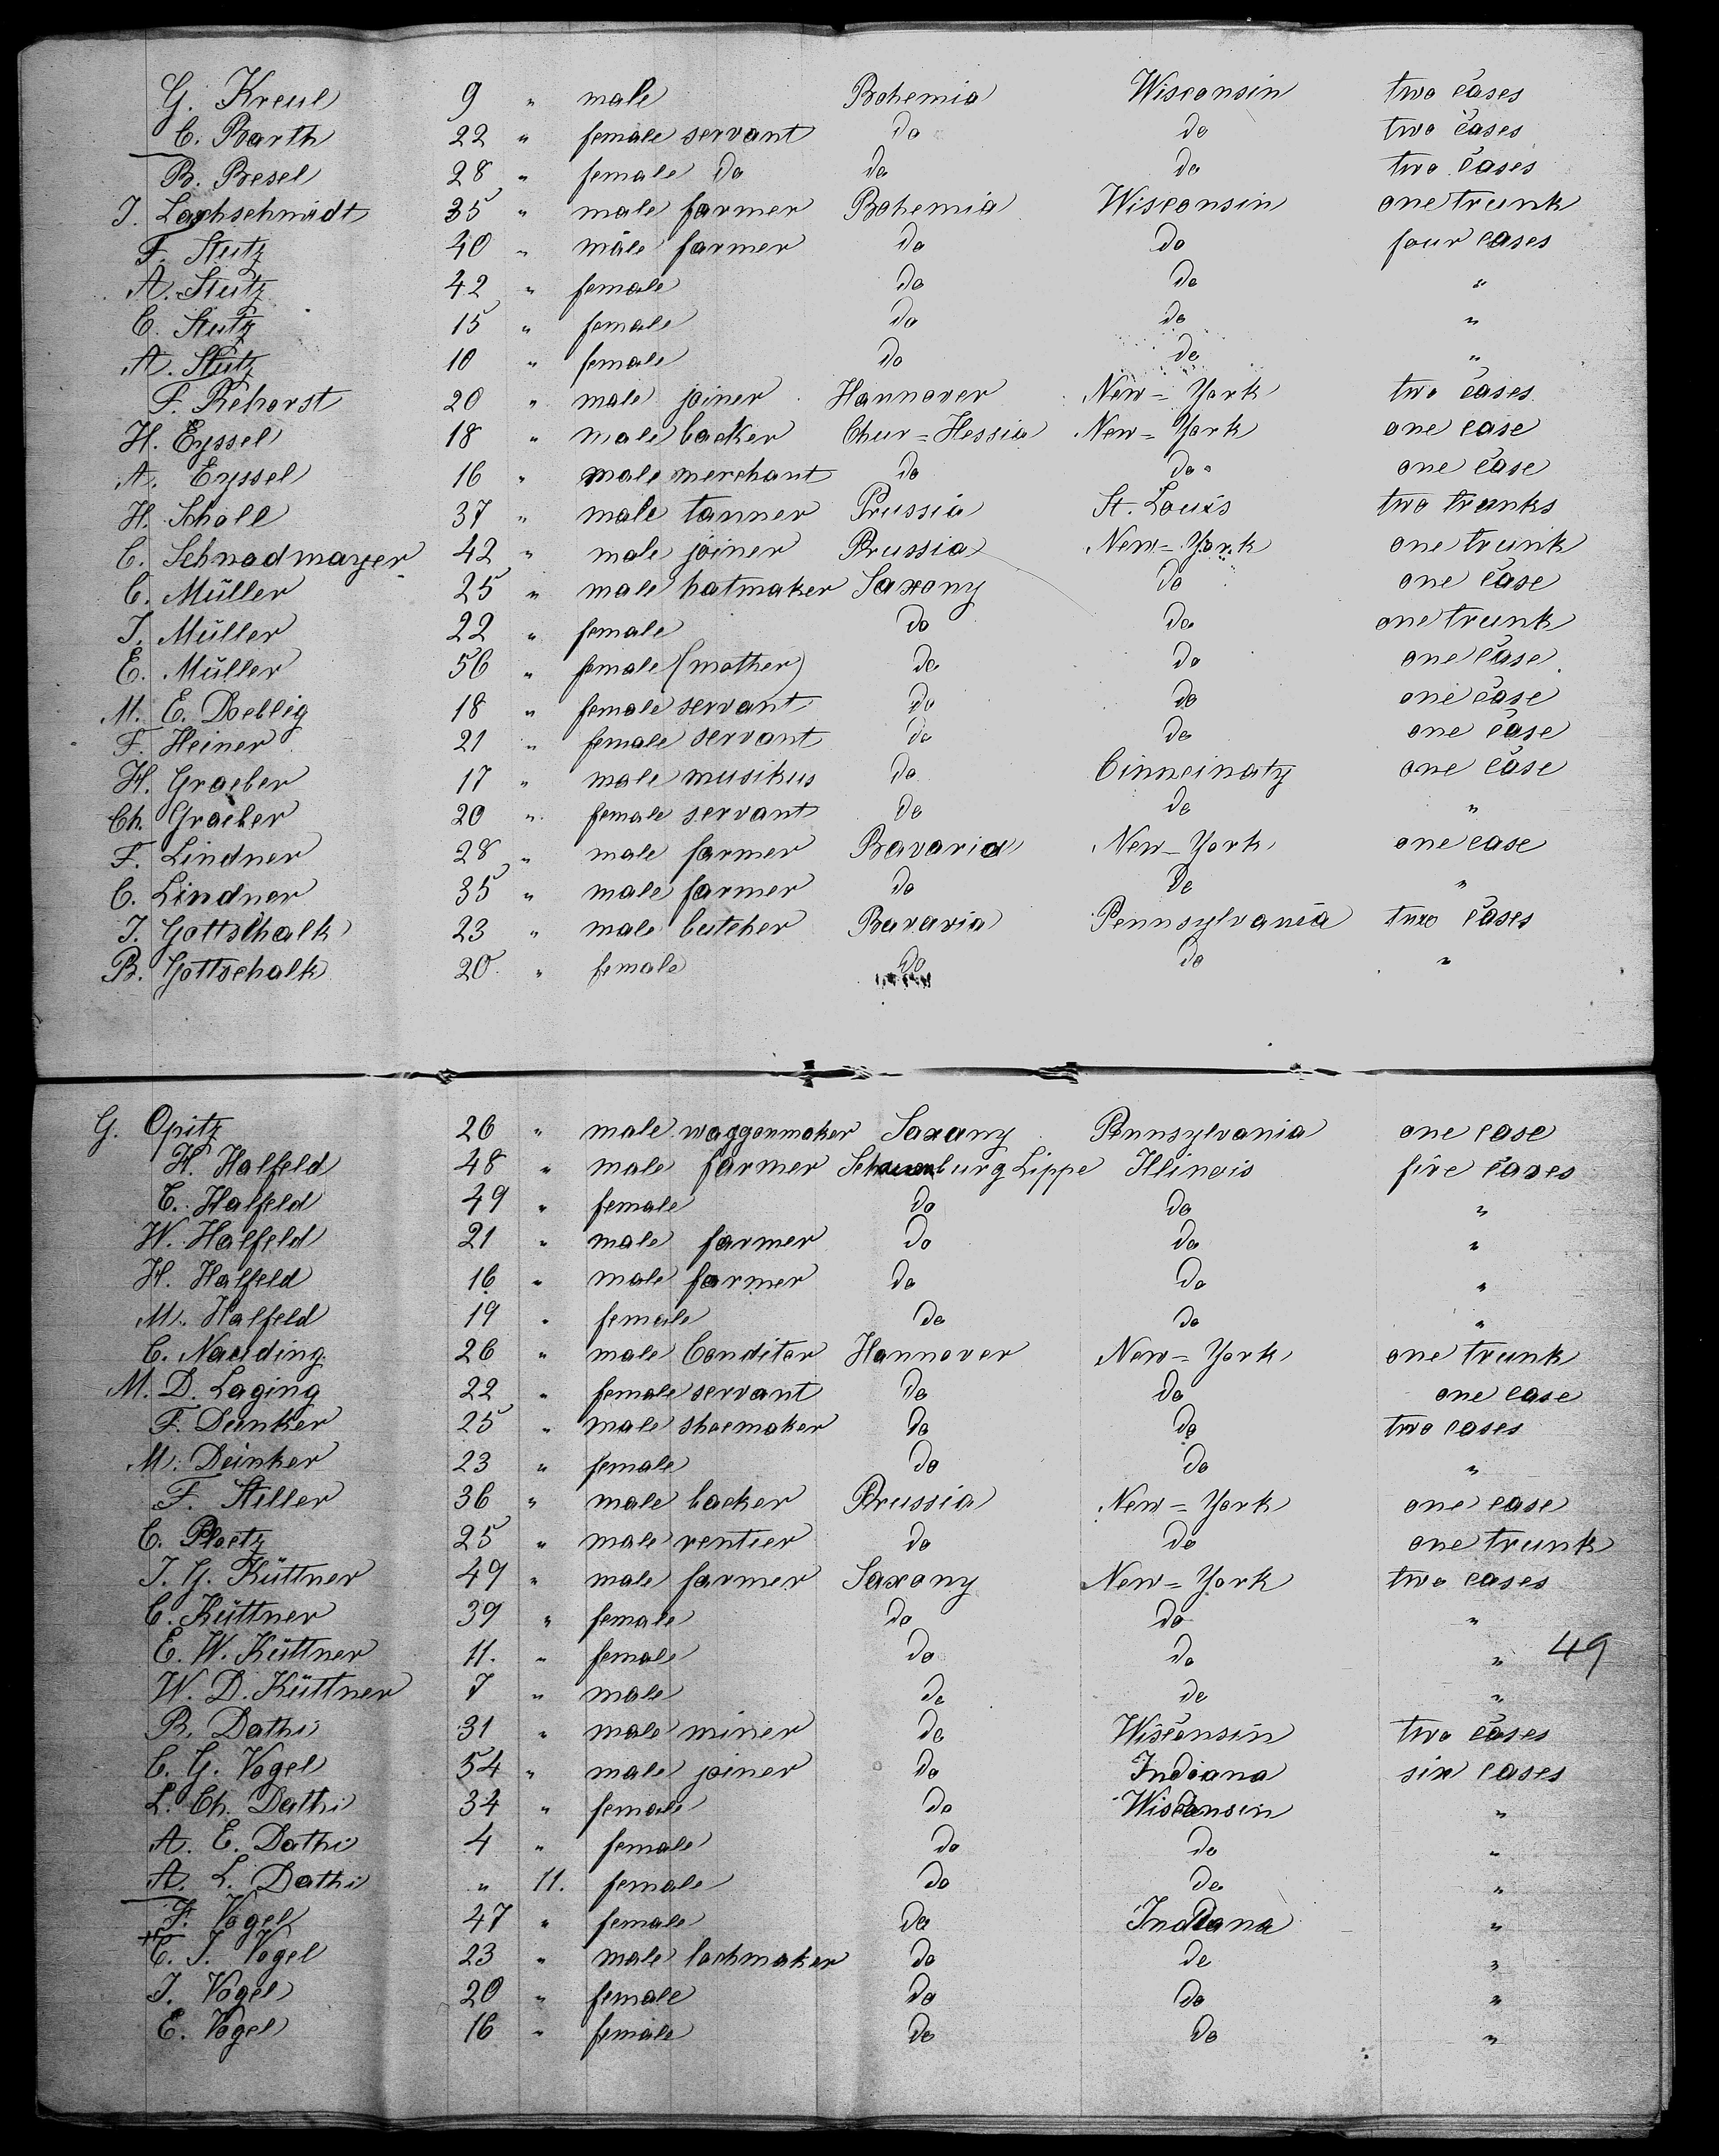 G. Kreul 9 " male Bohemia Wisconsin two cases
C. Barth 22 " female servant do do two cases
B. Besel 28 " female do do do two cases
J. Lachschmidt 35 " male farmer Bohemia Wisconsin one trunk
F. Stutz 40 " male farmer do do four cases
A. Stutz 42 " female do do "
C. Stutz 15 " female do do "
A. Stutz 10 " female do do "
F. Rehorst 20 " male joiner Hannover New-York two cases
H. Eyssel 18 " male backer Chur-Hessia New-York one case
A. Eyssel 16 " male merchant do do one case
H. Scholl 37 " male tanner Prussia St. Louis two trunks
C. Schnadmayer 42 " male joiner Prussia New-York one trunk
C. Müller 25 " male hatmaker Saxony do one case
J. Müller 22 " female do do one trunk
E. Müller 56 " female (mother) do do one case
M. E. Doellig 18 " female servant do do one case
F. Heiner 21 " female servant do do one case
H. Graeber 17 " male musikus do Cinncinaty one case
Ch. Graeber 20 " female servant do do "
F. Lindner 28 " male farmer Bavaria New-York one case
C. Lindner 35 " male farmer do do "
J. Gottschalk 23 " male butcher Bavaria Pennsylvania two cases
B. Gottschalk 20 " female do do "
G. Opitz 26 " male waggonmaker Saxony Pennsylvania one case
H. Halfeld 48 " male farmer Schauenburg Lippe Illinois five cases
C. Halfeld 49 " female do do "
W. Halfeld 21 " male farmer do do "
H. Halfeld 16 " male farmer do do "
M. Halfeld 19 " female do do "
C. Nauding 26 " male Conditor Hannover New-York one trunk
M. D. Laging 22 " female servant do do one case
F. Dunker 25 " male shoemaker do do two cases
M. Deinker 23 " female do do "
F. Stiller 36 " male backer Prussia New-York one case
C. Ploetz 25 " male rentier do do one trunk
J. G. Küttner 49 " male farmer Saxony New-York two cases
C. Küttner 39 " female do do "
E. W. Küttner 11. " female do do " 49
W. D. Küttner 7 " male do do "
B. Dathi 31 " male miner do Wisconsin two cases
C. G. Vogel 54 " male joiner do Indiana six cases
L. Ch. Dathi 34 " female do Wisconsin "
A. E. Dathi 4 " female do do "
A. L. Dathi " 11. female do do "
F. Vogel 47 " female do Indiana "
C. J. Vogel 23 " male lochmaker do do "
J. Vogel 20 " female do do "
E. Vogel 16 " female do do "